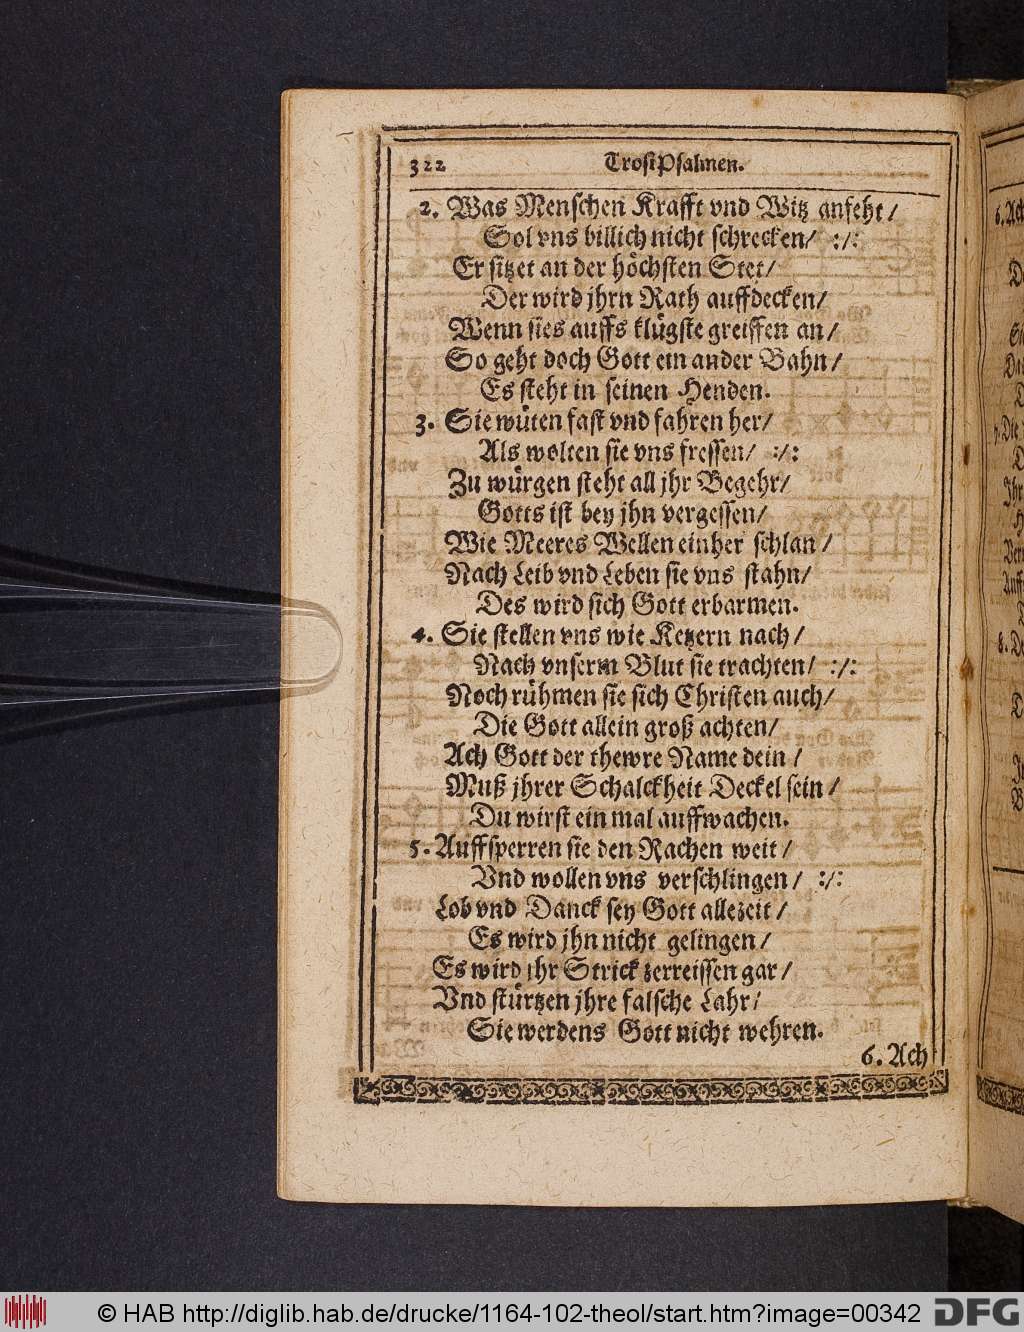 322 TrostPsalmen.
2. Was Menschen Krafft vnd Witz anfeht /
Sol vns billich nicht schrecken / :/:
Er sitzet an der höchsten Stet /
Der wird jhrn Rath auffdecken /
Wenn sies auffs klügste greiffen an /
So geht doch Gott ein ander Bahn /
Es steht in seinen Henden.
3. Sie wüten fast vnd fahren her /
Als wolten sie vns fressen / :/:
Zu würgen steht all jhr Begehr /
Gotts ist bey jhn vergessen /
Wie Meeres Wellen einher schlan /
Nach Leib vnd Leben sie vns stahn /
Des wird sich Gott erbarmen.
4. Sie stellen vns wie Ketzern nach /
Nach vnserm Blut sie trachten / :/:
Noch rühmen sie sich Christen auch /
Die Gott allein groß achten /
Ach Gott der thewre Name dein /
Muß jhrer Schalckheit Deckel sein /
Du wirst ein mal auffwachen.
5. Auffsperren sie den Rachen weit /
Vnd wollen vns verschlingen / :/:
Lob vnd Danck sey Gott allezeit /
Es wird jhn nicht gelingen /
Es wird jhr Strick zerreissen gar /
Vnd stürtzen jhre falsche Lahr /
Sie werdens Gott nicht wehren.
6. Ach
6. Ach
© HAB http://diglib.hab.de/drucke/1164-102-theol/start.htm?image=00342
DFG